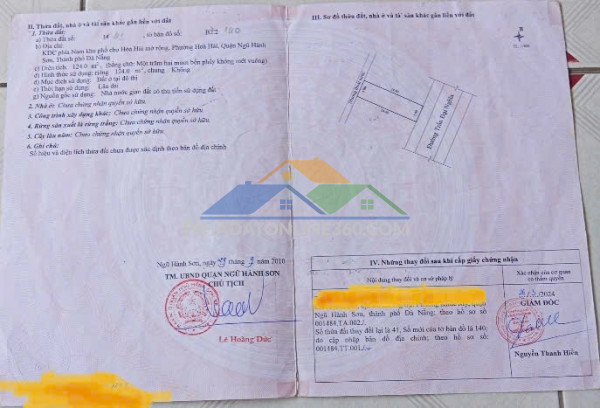 II. Thửa đất, nhà ở và tài sản khác gắn liền với đất
1. Thửa đất:
a) Thửa đất số: tờ bản đồ số:
b) Địa chỉ:
KDC phía Nam khu phố chợ Hòa Hải mở rộng, Phường Hoà Hải, Quận Ngũ Hành
Sơn, Thành phố Đà Nẵng
c) Diện tích: 124.0 m², (bằng chữ: Một trăm hai mươi bốn phẩy không mét vuông)
d) Hình thức sử dụng: riêng: 124.0 m², chung: Không
đ) Mục đích sử dụng: Đất ở tại đô thị
e) Thời hạn sử dụng: Lâu dài
g) Nguồn gốc sử dụng: Nhà nước giao đất có thu tiền sử dụng đất
2. Nhà ở: Chưa chứng nhận quyền sở hữu.
3. Công trình xây dựng khác: Chưa chứng nhận quyền sở hữu.
4. Rừng sản xuất là rừng trồng: Chưa chứng nhận quyền sở hữu.
5. Cây lâu năm: Chưa chứng nhận quyền sở hữu.
6. Ghi chú:
Số hiệu và diện tích thửa đất chưa được xác định theo bản đồ địa chính
Ngũ Hành Sơn, ngày tháng năm 2010
TM. UBND QUẬN NGŨ HÀNH SƠN
CHỦ TỊCH
Lê Hoàng Đức
III. Sơ đồ thửa đất, nhà ở và tài sản khác gắn liền với đất
Đường Trần Đại Nghĩa
IV. Những thay đổi sau khi cấp giấy chứng nhận
Nội dung thay đổi và cơ sở pháp lý
Xác nhận của cơ quan
có thẩm quyền
Ngũ Hành Sơn, thành phố Đà Nẵng; theo hồ sơ số
001484.TA.002./.
Số thửa đất thay đổi lại là 41, Số mới của tờ bản đồ là 140;
do cập nhập bản đồ địa chính; theo hồ sơ số:
001484.TT.001./.
2024
GIÁM ĐỐC
Nguyễn Thanh Hiền